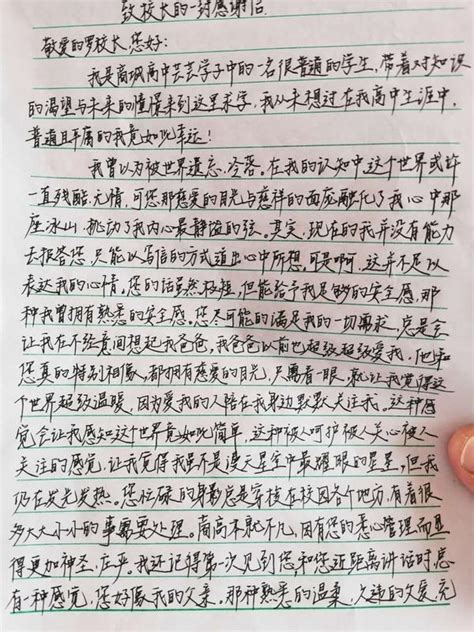 致校长的一封感谢信
敬爱的罗校长,您好:
我是商飒高中芸芸学子中的一名很普通的学生,带着对知识
的渴望与未来的憧憬来到这里求学,我从未想过在我高中生涯中,
普通且平庸的我竟如此幸运!
我曾以为被世界遗忘、冷落。在我的认知中这个世界或许
一直残酷无情,可您那慈爱的目光与慈祥的面庞融化了我心中那
座冰山,扰动了我内心最静谧的弦。其实,现在的我并没有能力
去报答您,只能以写信的方式道出心中所想。可是啊,这并不足以
表达我的心情。您的话虽然极短,但能给予我足够的安全感,那
种我曾拥有熟悉的安全感。您尽可能的满足我的一切需求,总是会
让我在不经意间想起我爸爸,我爸爸以前也超级超级爱我,他和
您真的特别相像,都拥有慈爱的目光,只需看一眼,就让我觉得这
个世界超级温暖,因为爱我的人陪在我身边默默关注我。这种感
觉会让我感知这个世界竟如此简单,这种被人呵护被人关心被人
关注的感觉,让我觉得我虽不是漫天星空中最耀眼的星星,但我
仍在发光发热。您忙碌的身影总是穿梭在校园各个地方,有着很
多大大小小的事需要处理。商高本就不凡,因有您的悉心管理而显
得更加神圣、庄严。我还记得第一次见到您,和您近距离讲话时总
有一种感觉,您好像我的父亲。那种熟悉的温柔,久违的父爱,充